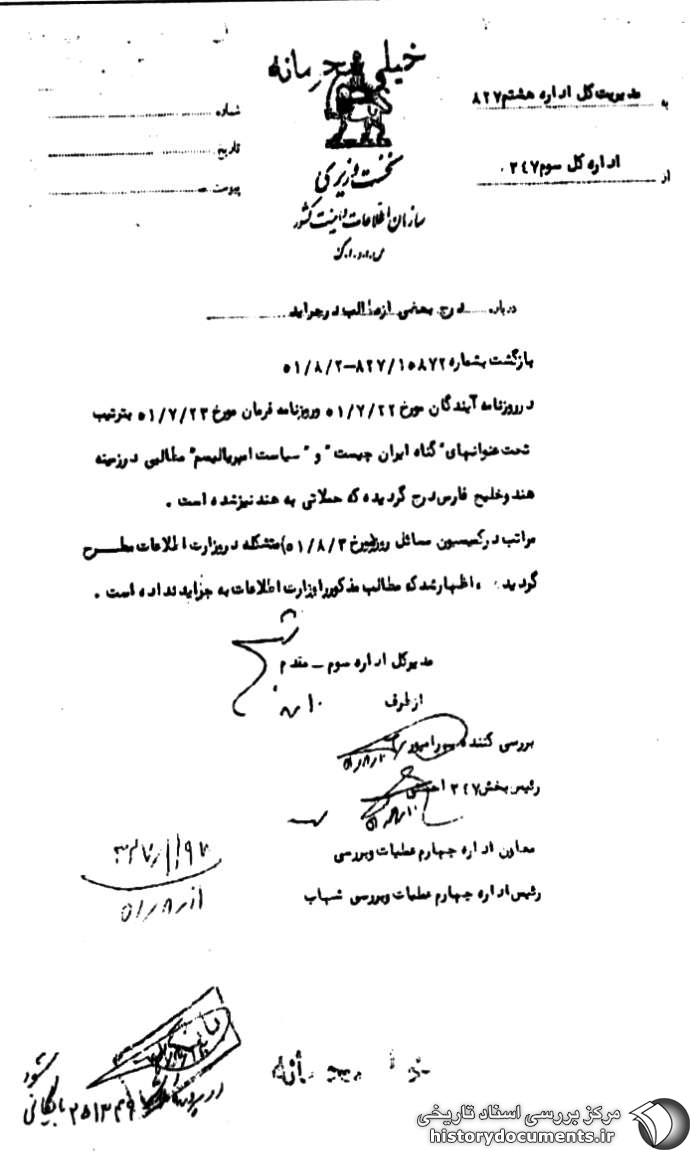 خیلی محرمانه
به مدیریت کل اداره هشتم ۸۲۷
از اداره کل سوم ۳۴۷
شماره
تاریخ
پیوست
نخست وزیری
سازمان اطلاعات و امنیت کشور
س.ا.و.ا.ک
درباره درج بعضی از مطالب در جراید
بازگشت بشماره ۸۲۷/۱۵۸۷۲–۵۱/۸/۲
در روزنامه آیندگان مورخ ۵۱/۷/۲۲ و روزنامه فرمان مورخ ۵۱/۷/۲۳ بترتیب
تحت عنوانهای "گناه ایران چیست" و "سیاست امپریالیسم" مطالبی در زمینه
هند و خلیج فارس درج گردیده که حملاتی به هند نیز شده است .
مراتب در کمیسیون مسائل روز (مورخ ۵۱/۸/۳) متشکله در وزارت اطلاعات مطرح
گردید ، اظهار شد که مطالب مذکور را وزارت اطلاعات به جراید نداده است .
مدیر کل اداره سوم – مقدم
از طرف
بررسی کننده
رئیس بخش ۳۴۷
معاون اداره چهارم عملیات و بررسی
رئیس اداره چهارم عملیات و بررسی شهاب
بایگانی شود
خیلی محرمانه
مرکز بررسی اسناد تاریخی
historydocuments.ir